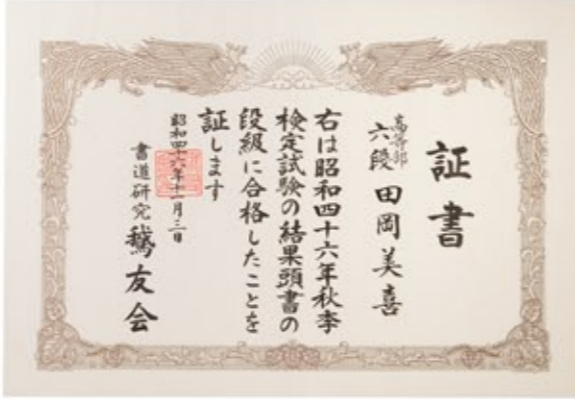 証書
高等部
六段 田岡美喜
右は昭和四十六年秋季
検定試験の結果頭書の
段級に合格したことを
証します
昭和四十六年十一月三日
書道研究 鵞友会